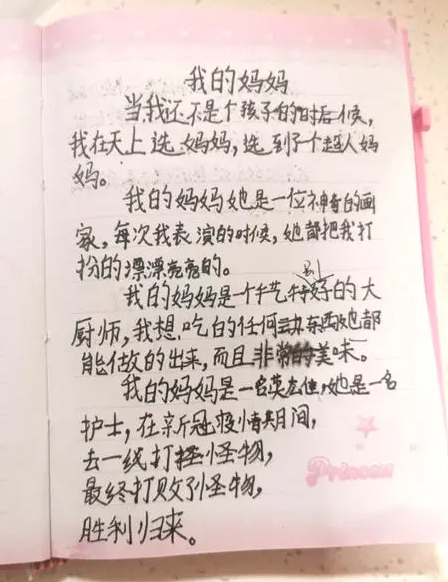 我的妈妈
当我还不是个孩子的时后候,
我在天上选妈妈,选到了个超人妈
妈。
我的妈妈她是一位神奇的画
家,每次我表演的时候,她都把我打
扮的漂漂亮亮的。
我的妈妈是个手艺特别好的大
厨师,我想吃的任何东西她都
能做的出来,而且非常的美味。
我的妈妈是一名英雄,她是一名
护士,在新冠疫情期间,
去一线打怪物,
最终打败了怪物,
胜利归来。
Princess